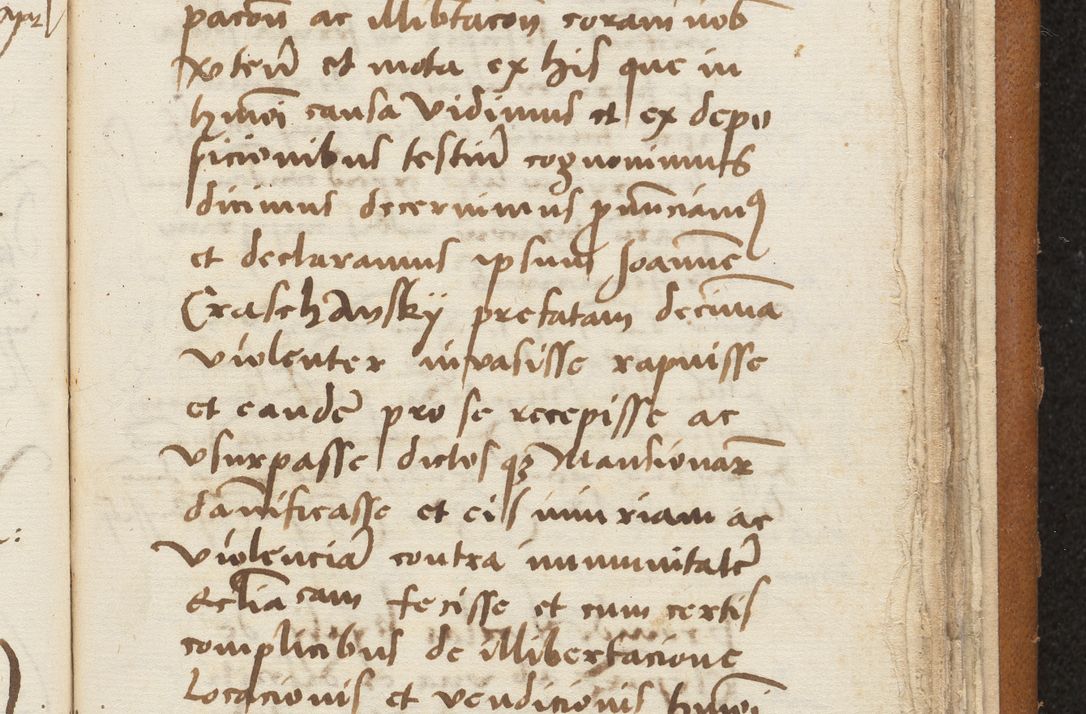 pacoñ ac illibtacoñ coram nob
et mota ex his que in
hmoi causa vidimus et ex depo
sicionibus testiũ cognovimus
dicimus decernimus
et declaramus ipsum Joannẽ
Craschawsky prefatam decimã
violenter invasisse rapuisse
et eandẽ pro se recepisse ac
vsurpasse dictos qz Mansionar̃
dãnificasse et eis iniuriam ac
violenciã contra immunitatẽ
eccl̃iacam fecisse et cum certis
complicibus de illibertacione
locacionis et vendicionis hmoi